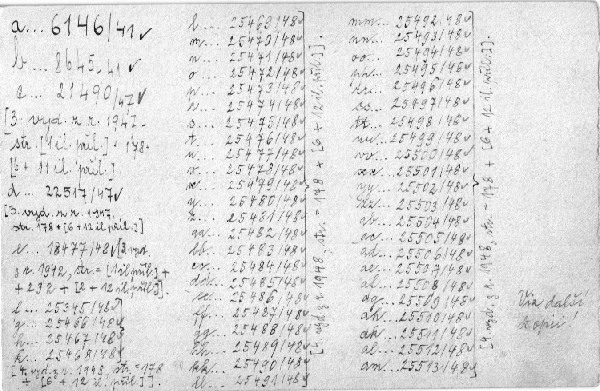 a... 6146/41✓
b... 8645/41✓
c... 21490/47✓
[3. vyd. z r. 1947.
str. [4 il. příl.] + 178 +
[6 + 11 il. příl.]
d... 22517/47✓
[3. vyd. z r. 1947.
str. 178 + [6 + 12 il. příl.]
e... 18477/48✓ [2. vyd.
z r 1942, str. = [1 il. příl.] +
+ 232 + [2 + 12 il. příl.].
f... 25345/48✓
g... 25466/48✓
h... 25467/48✓
k... 25468/48✓
[4. vyd. z r. 1948, str. = 178
+ [6 + 12 il. příl.]].
l... 25469/48✓
m... 25470/48✓
n... 25471/48✓
o... 25472/48✓
p... 25473/48✓
r... 25474/48✓
s... 25475/48✓
t... 25476/48✓
u... 25477/48✓
v... 25478/48✓
x... 25479/48✓
y... 25480/48✓
z... 25481/48✓
aa... 25482/48✓
bb... 25483/48✓
cc... 25484/48✓
dd... 25485/48✓
ee... 25486/48✓
ff... 25487/48✓
gg... 25488/48✓
hh... 25489/48✓
kk... 25490/48✓
ll... 25491/48✓
[4. vyd. z r. 1948, str. = 178 + [6 + 12 il. příl.]].
mm... 25492/48✓
nn... 25493/48✓
oo... 25494/48✓
pp... 25495/48✓
rr... 25496/48✓
ss... 25497/48✓
tt... 25498/48✓
uu... 25499/48✓
vv... 25500/48✓
xx... 25501/48✓
yy... 25502/48✓
zz... 25503/48✓
ab... 25504/48✓
ac... 25505/48✓
ad... 25506/48✓
ae... 25507/48✓
af... 25508/48✓
ag... 25509/48✓
ah... 25510/48✓
ak... 25511/48✓
al... 25512/48✓
am... 25513/48✓
[4. vyd. z r. 1948, str. = 178 + [6 + 12 il. příl.]].
Viz další
kopii!